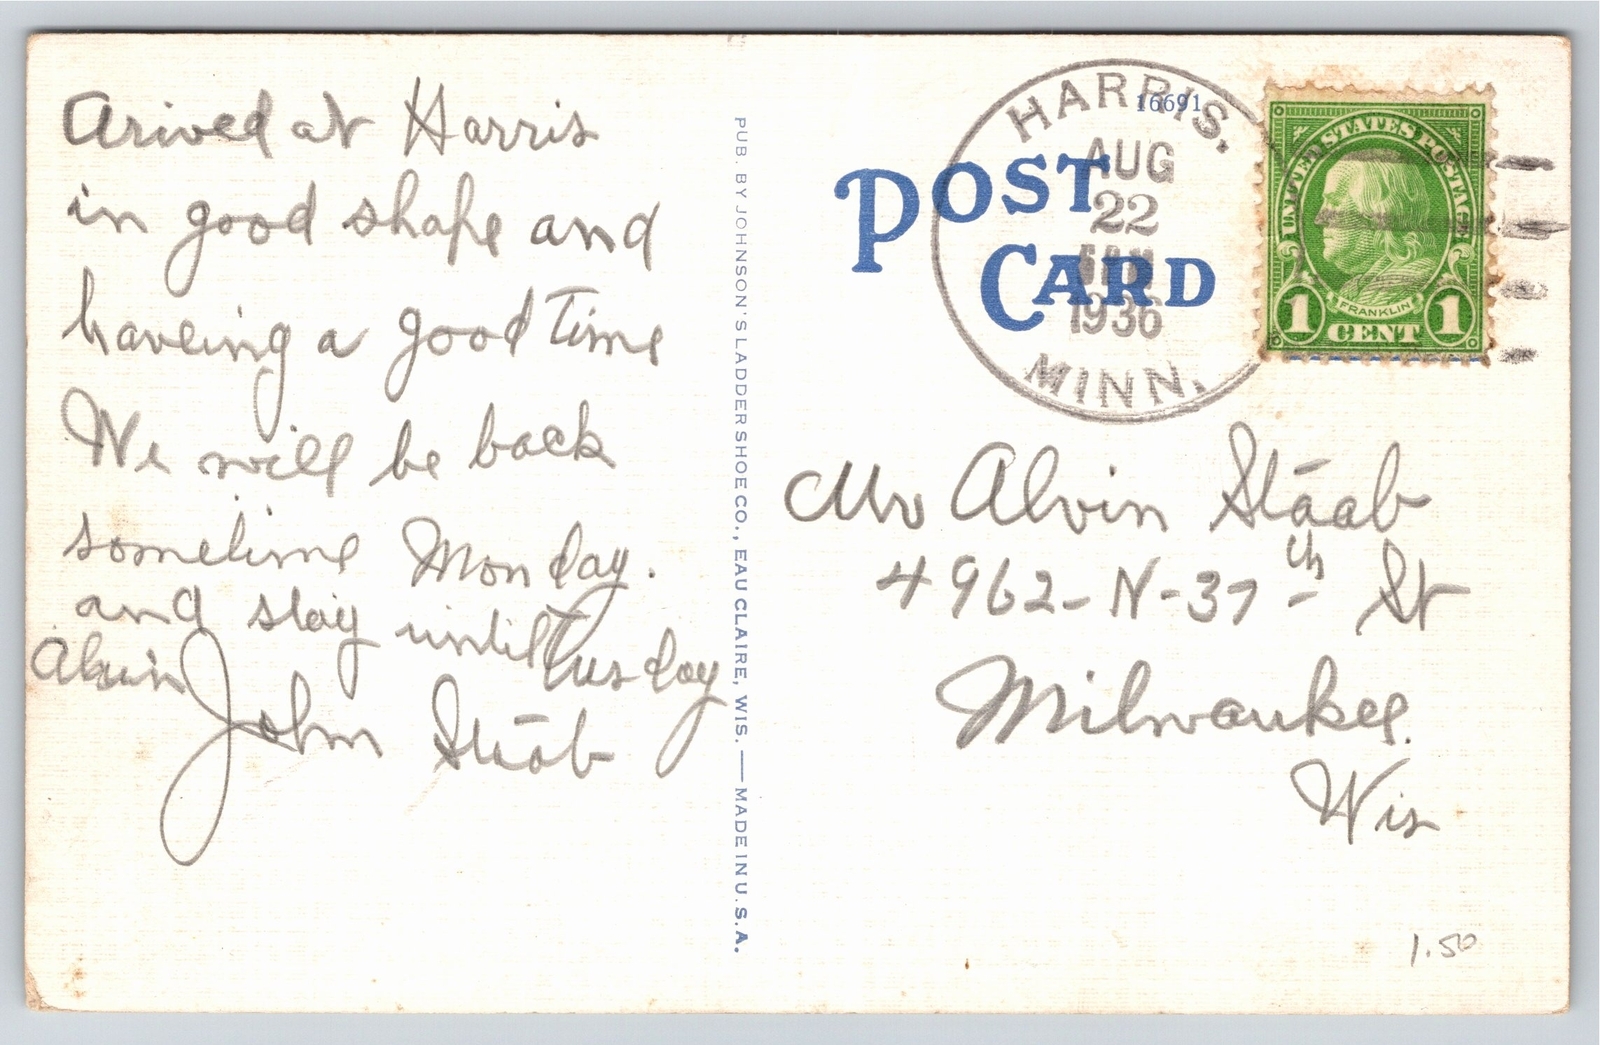 Arived at Harris
in good shape and
haveing a good Time
We will be back
sometime Monday.
and stay until Tusday
Alvin
John Stāab
PUB. BY JOHNSON'S LADDER SHOE CO., EAU CLAIRE, WIS. — MADE IN U.S.A.
16691
POST
CARD
HARRIS.
AUG
22
1936
MINN.
UNITED STATES POSTAGE
FRANKLIN
1 CENT 1
Mr Alvin Stāab
4962-N-37th St
Milwaukee.
Wis
1.50